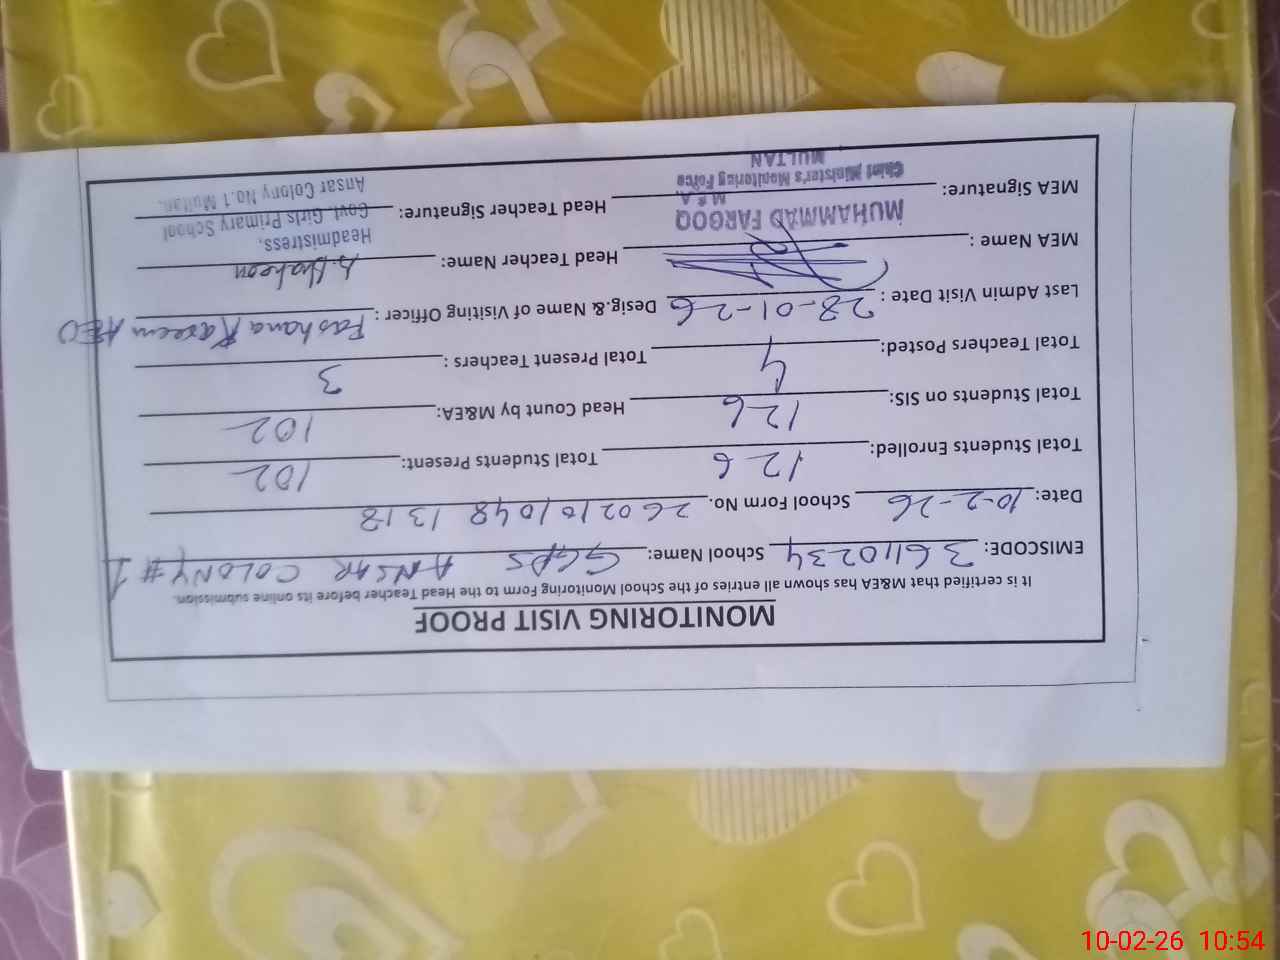 MONITORING VISIT PROOF
It is certified that M&EA has shown all entries of the School Monitoring Form to the Head Teacher before its online submission.
EMISCODE: 36110234 School Name: GGPS ANSAR COLONY # 1
Date: 10-2-26 School Form No. 2602101048 1318
Total Students Enrolled: 126 Total Students Present: 102
Total Students on SIS: 126 Head Count by M&EA: 102
Total Teachers Posted: 4 Total Present Teachers : 3
Last Admin Visit Date : 28-01-26 Desig.& Name of Visiting Officer : Farhana Kareem AEO
MEA Name : Head Teacher Name:
MEA Signature: Head Teacher Signature:
MUHAMMAD FAROOQ
M & A.
Chief Minister's Monitoring Force
MULTAN
Headmistress,
Govt. Girls Primary School
Ansar Colony No.1 Multan.
10-02-26 10:54